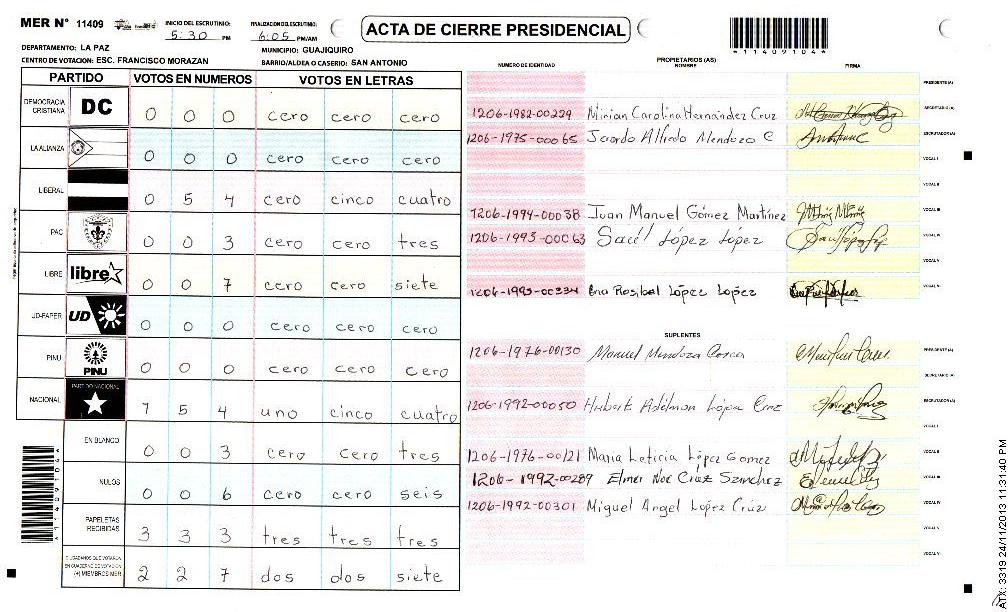 MER N° 11409
INICIO DEL ESCRUTINIO: 5:30 PM
FINALIZACION DEL ESCRUTINIO: 6:05 PM/AM
ACTA DE CIERRE PRESIDENCIAL
*11409104*
DEPARTAMENTO: LA PAZ
MUNICIPIO: GUAJIQUIRO
CENTRO DE VOTACION: ESC. FRANCISCO MORAZAN
BARRIO/ALDEA O CASERIO: SAN ANTONIO
PARTIDO VOTOS EN NUMEROS VOTOS EN LETRAS
DEMOCRACIA CRISTIANA DC 0 0 0 cero cero cero
LA ALIANZA 0 0 0 cero cero cero
LIBERAL 0 5 4 cero cinco cuatro
PAC 0 0 3 cero cero tres
LIBRE libre 0 0 7 cero cero siete
UD-FAPER UD 0 0 0 cero cero cero
PINU PINU 0 0 0 cero cero cero
NACIONAL PARTIDO NACIONAL 1 5 4 uno cinco cuatro
EN BLANCO 0 0 3 cero cero tres
NULOS 0 0 6 cero cero seis
PAPELETAS RECIBIDAS 3 3 3 tres tres tres
CIUDADANOS QUE VOTARON EN CUADERNO DE VOTACION (+) MIEMBROS MER 2 2 7 dos dos siete
*11409104*
PROPIETARIOS (AS)
NUMERO DE IDENTIDAD NOMBRE FIRMA
PRESIDENTE (A)
1206-1982-00229 Mirian Carolina Hernández Cruz SECRETARIO (A)
1206-1975-00065 Alfredo Mendoza C ESCRUTADOR (A)
VOCAL I
VOCAL II
1206-1994-00038 Juan Manuel Gómez Martínez VOCAL III
1206-1993-00063 López López VOCAL IV
VOCAL V
1206-1993-00334 López López VOCAL VI
SUPLENTES
1206-1976-00130 Manuel Mendoza PRESIDENTE (A)
SECRETARIO (A)
1206-1992-00050 López Cruz ESCRUTADOR (A)
VOCAL I
1206-1976-00121 Maria Leticia López Gomez VOCAL II
1206-1992-00289 Elmer Noe Cruz Sanchez VOCAL III
1206-1992-00301 Miguel Angel López Cruz VOCAL IV
VOCAL V
VOCAL VI
ATX: 3319 24/11/2013 11:31:40 PM